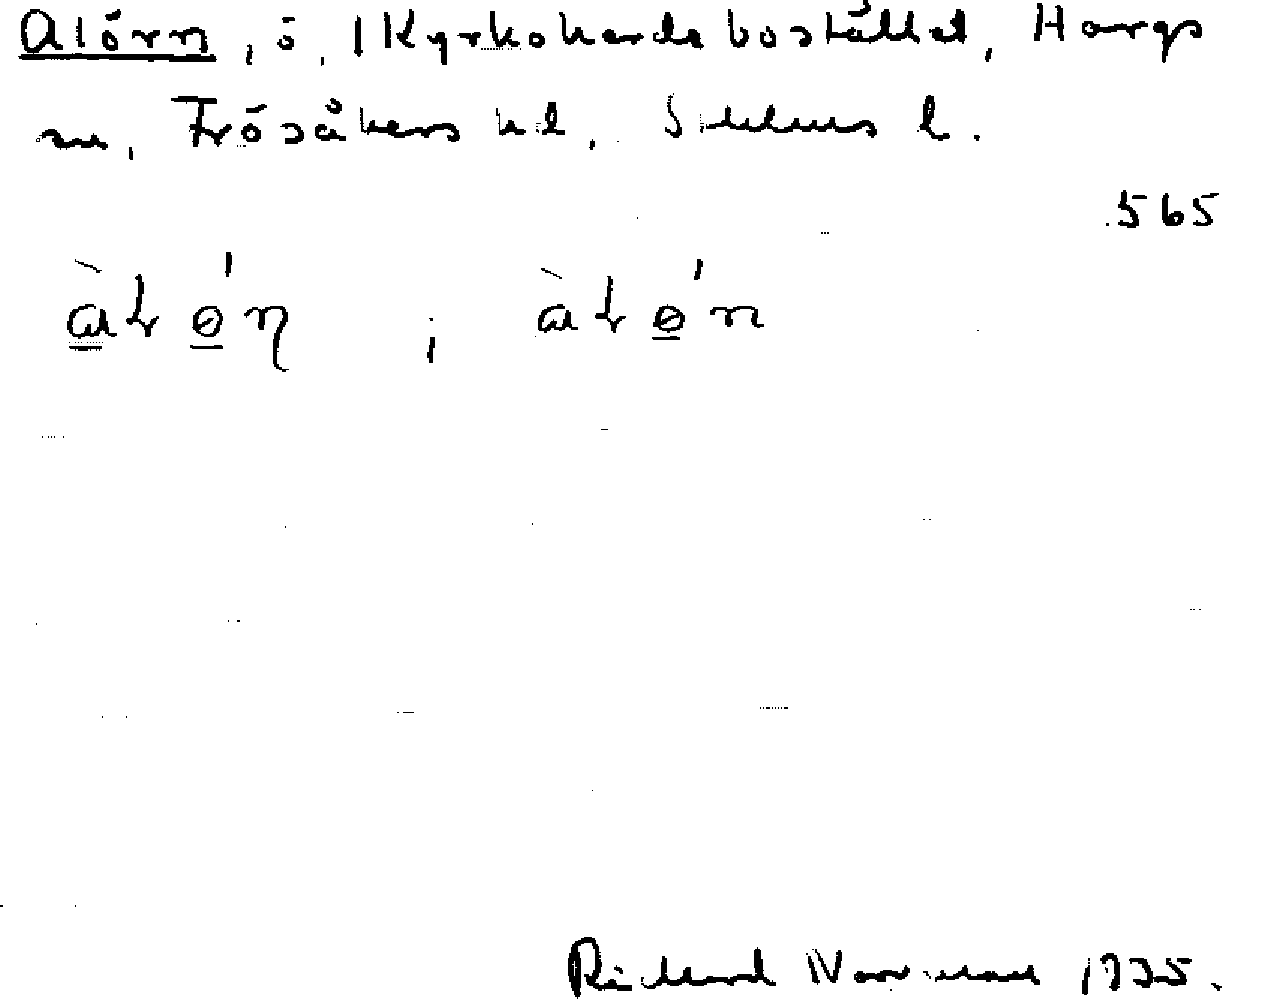 Alörn, ö, 1 Kyrkoherdebostället, Hargs
sn, Frösåkers hd, Sthlms l.
565
Richard Norrman 1935.